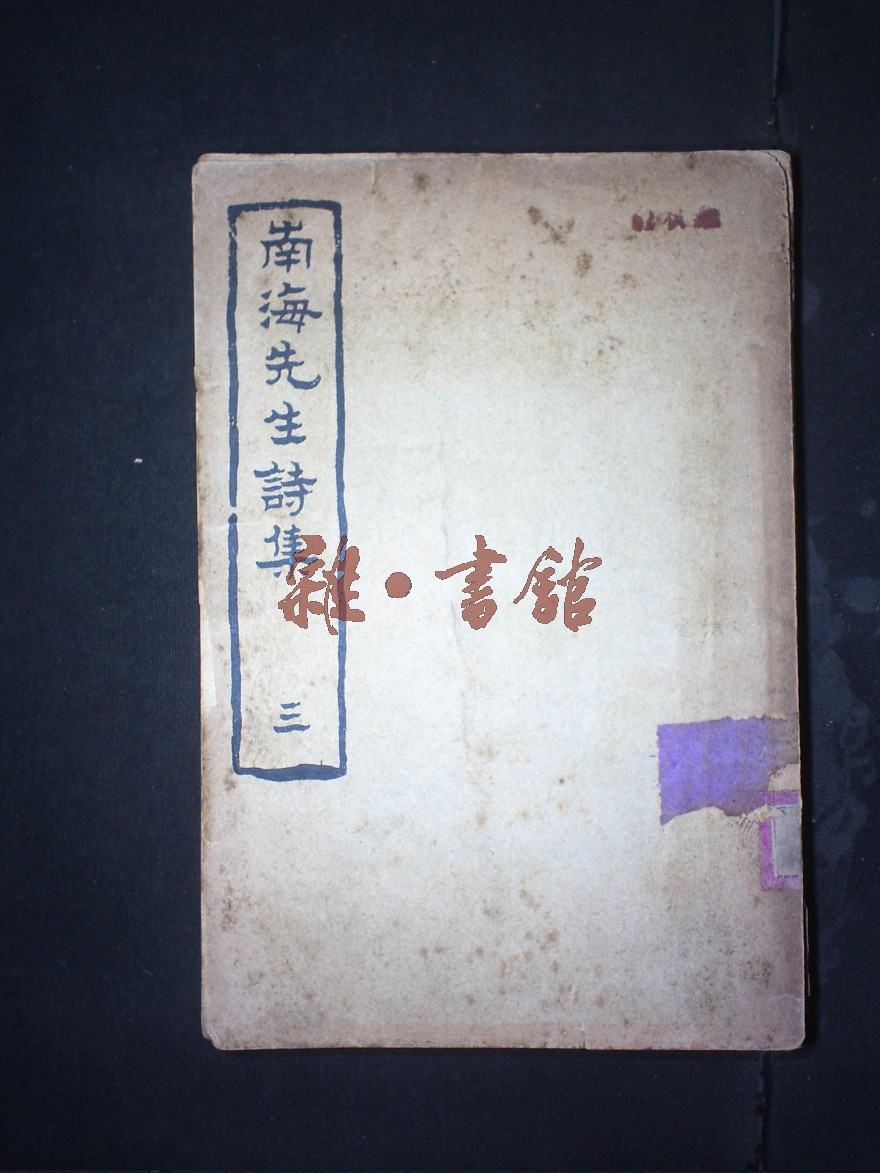 南海先生詩集 三
雜·書館